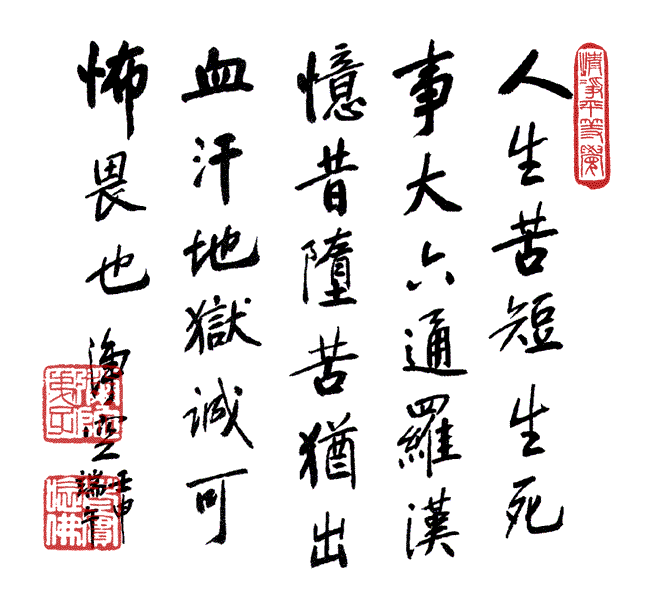 清淨平等覺
人生苦短生死
事大六通羅漢
憶昔墮苦猶出
血汗地獄誠可
怖畏也
淨空
壬申
端午
念佛